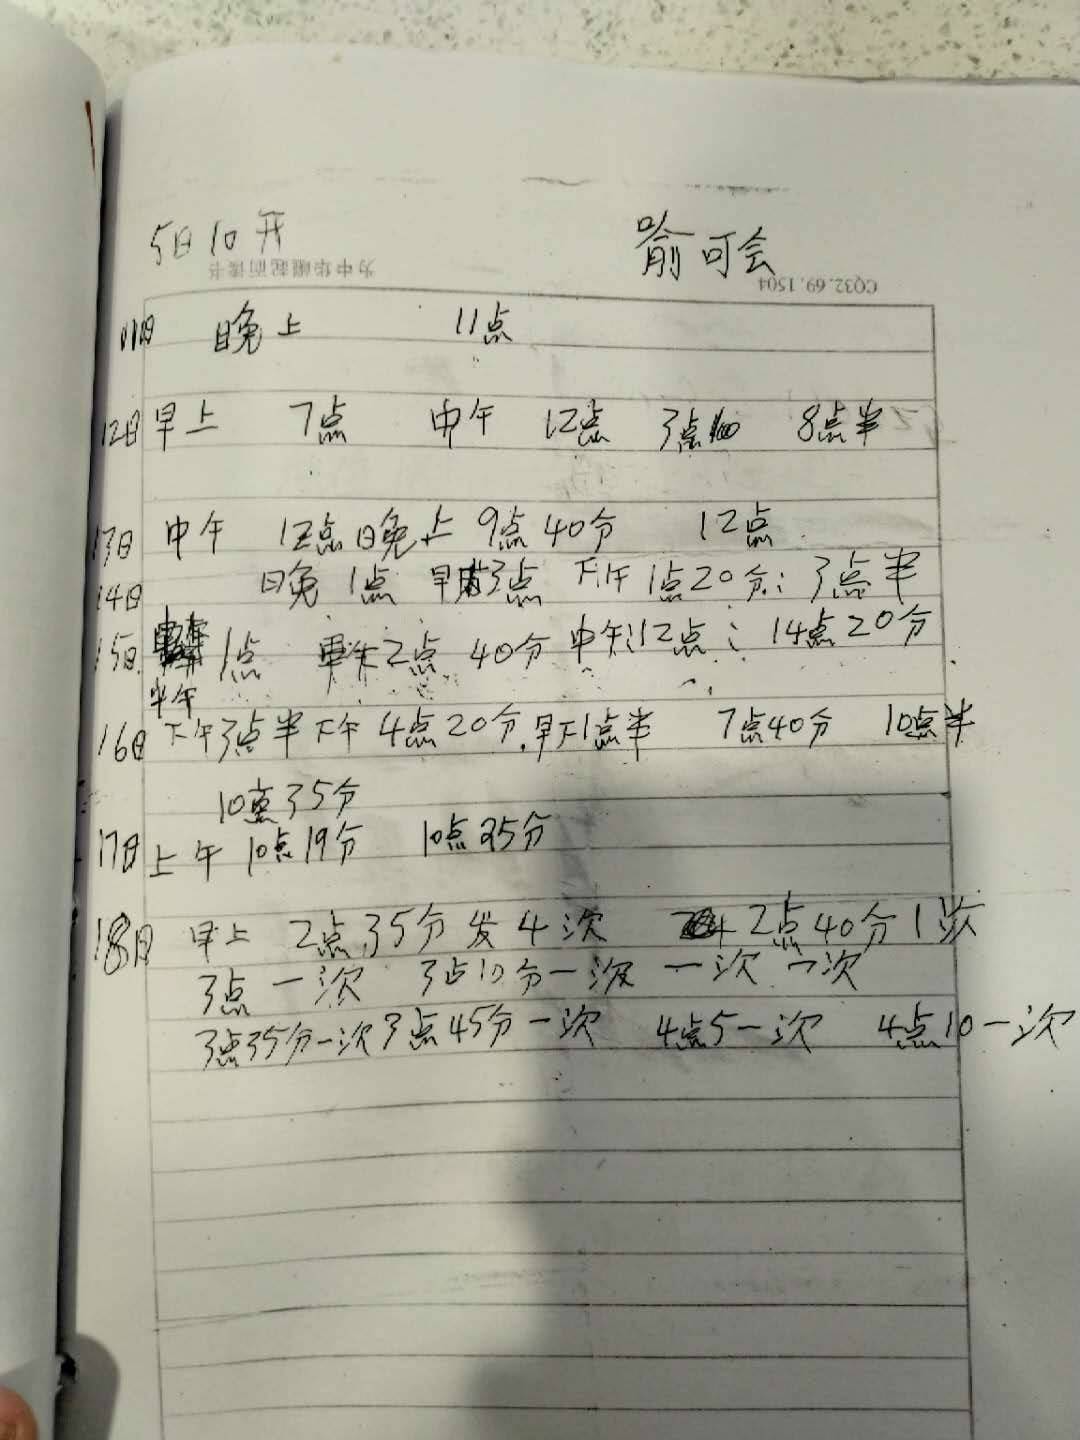 5日10开 喻可会
为中华崛起而读书 CQ32.69.1504
11日 晚上 11点
12日 早上 7点 中午 12点 3点 8点半
13日 中午 12点 晚上 9点40分 12点
14日 晚 1点 早 3点 下午1点20分; 3点半
15日 1点 2点40分 中午12点; 14点20分
半午
16日 下午3点半 下午4点20分. 早下1点半 7点40分 10点半
10点35分
17日 上午 10点19分 10点35分
18日 早上 2点35分发4次 2点40分1次
3点一次 3点10分一次 一次 一次
3点35分一次 3点45分一次 4点5一次 4点10一次